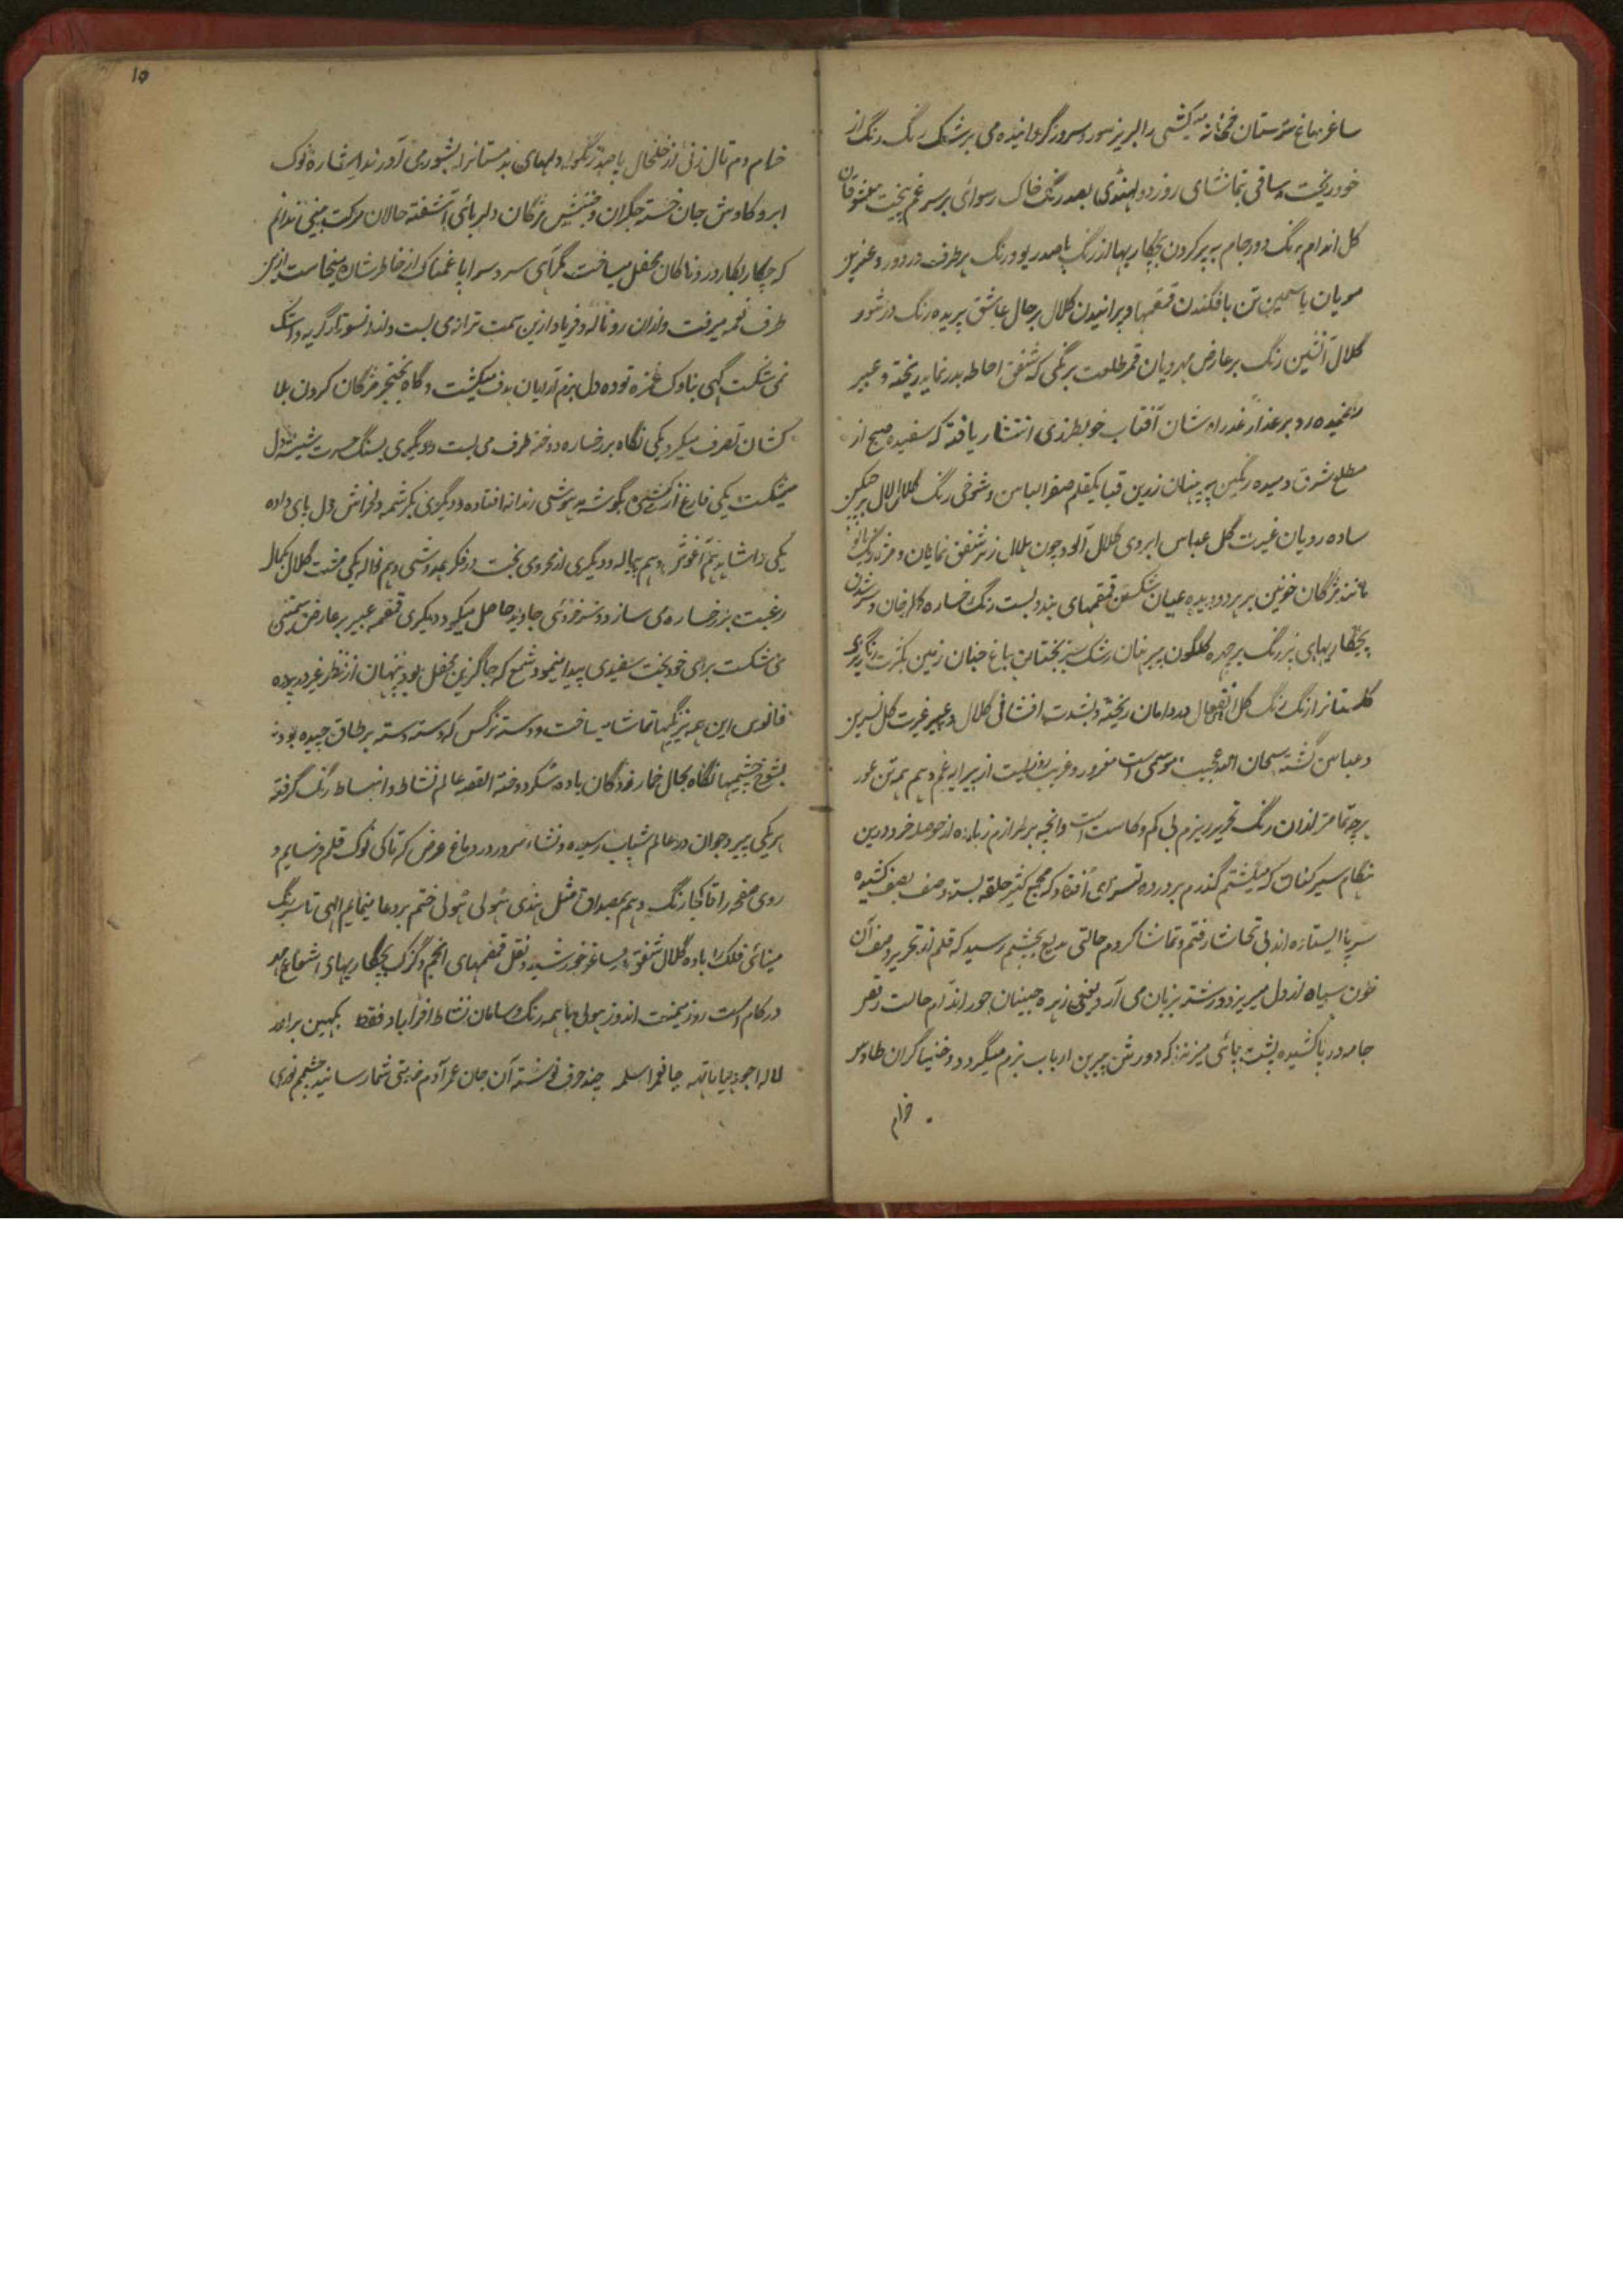 ساغر دماغ سرمستان خمخانه میکشی را لبریز سور و سرور گردانیده می بر شک رنگ رنگ از
خود ریخت و ساقی بتماشای روز دولهندی بصد رنگ خاک رسوائی بر سر غم بیخت معشوقان
گل اندام برنگ دور جام به پر کردن پچکاریها از رنگ با صد ریو و رنگ هر طرف در دور و عنبرین
مویان یاسمین تن بافکندن قمقمها و پرانیدن گلال بر حال عاشق پریده رنگ در شور
گلال آتشین رنگ بر عارض مهرویان قمر طلعت برنگی که شفق احاطه بدر نماید ریخته و عبیر
بر عذار شان آفتاب خو بطرزی انتشار یافته که سفیده صبح از
مطلع مشرق دمیده رنگین پیرهنان زرین قبا یکقلم صفر الباس و شوخی رنگ گلال
ساده رویان غیرت گل عباس ابروی گلال آلود چون هلال زیر شفق نمایان و
مانند مژگان خونین بر هر دو دیده عیان شکستن قمقمهای بند و بست رنگ رخساره
پچکاریهای پر رنگ بر چهره گلگون پیرهنان رشک سبز بختان باغ جنان زمین بکثرت رنگریزی
گلستانرا رنگ رنگ گل انفعال در دامان ریخته و بشدت افشانی گلال و عبیر غیرت گل نسرین
و عباس گشته سبحان الله عجیب موسمی است و غریب روزیست از پیرایه غم و هم همه تن عور
هر چه تمامتر ازان رنگ تحریر ریزم بی کم و کاست است و آنچه بر طرازم زیاده از حوصله خرد درین
هنگام سیر کنان که میگشتم گذرم بر در ده تسوی افتاد که مجمع کثیر حلقه بسته و صف بصف کشیده
سر پا ایستاده اند بی تحاشا رفتم و تماشا کردم حالتی بدیع بچشم رسید که قلم از تحریر وصف آن
خون سیاه از دل میریزد و رشته بزبان می آرد یعنی زهره جبینان حور اندام حالت رقص
جامه در پا کشیده پشت پائی میزنند که دورش پیرهن ارباب بزم میگردد و خنیاگران طاوس
خرام
۱۵
خرام دم تال زنی از خلخال پا صد زنگوله دلهای بدمستانرا بشور می آورند اشاره نوک
ابرو کاوش جان خسته جگران و جنبش مژگان دلربائی آشفته حالان حرکت بینی ندانم
که چکار بکار درد ناکان محفل میساخت گرمی سرود سراپا غمناک از خاطر شان میخاست ازین
طرف نغمه میرفت و ازان رو ناله و فریاد ازین سمت ترانه می بست و ازان سو تار گریه و اشک
می شکست گهی بناوک غمزه توده دل بزم آرایان هدف میگشت و گاه بخنجر مژگان کردن بلا
کشان تصرف میکرد یکی نگاه بر رخساره دوخته طرف می بست و دیگری بسنگ حسرت شیشه دل
میشکست یکی فارغ از بگوشه بیهوشی رندانه افتاده و دیگری بکرشمه دلخراش دل بای داده
یکی را شاید هم آغوش و هم پیاله و دیگری از نحوی بخت در فکر بدوشی و هم نواله یکی مشت گلال بکمال
رغبت بر رخساره می سازد و سرخروئی جاوید حاصل میکرد دیگری قمقمه عبیر بر عارض سیمتنی
می شکست برای خود بخت سفیدی پیدا مینمود شمع که جاگزین محفل بود پنهان از نظر غیر در پرده
فانوس این همه نیرنگیها تماشا میساخت و دسته نرگس که دسته دسته بر طاق چیده بودند
بشوخ چشمیها نگاه بحال خمار زدگان باده سکر دوخته القصه عالم نشاط و انبساط رنگ گرفته
هر یکی پیر و جوان در عالم شباب رسیده و نشاء سرور در دماغ غرض که تا کی نوک قلم فرسایم و
روی صفحه را تا کجا رنگ دهم بمصداق مثل هندی هولی هولی ختم بر دعا مینمایم الهی تا سبز رنگ
مینائی فلک را باده گلال شفق بساغر خورشید و نقل قمقمهای انجم و گزک پچکاریهای اشعاع مه
در کام است روز میمنت اندوز هولی با همه رنگ و سامان نشاط افزا باد فقط بکهین برادر
لاله اجودهیا ناتهه جانفرا سلمه چند حرف نوشته آن جان عمر آدم خیریتی شمار رسانید چشمم نوری